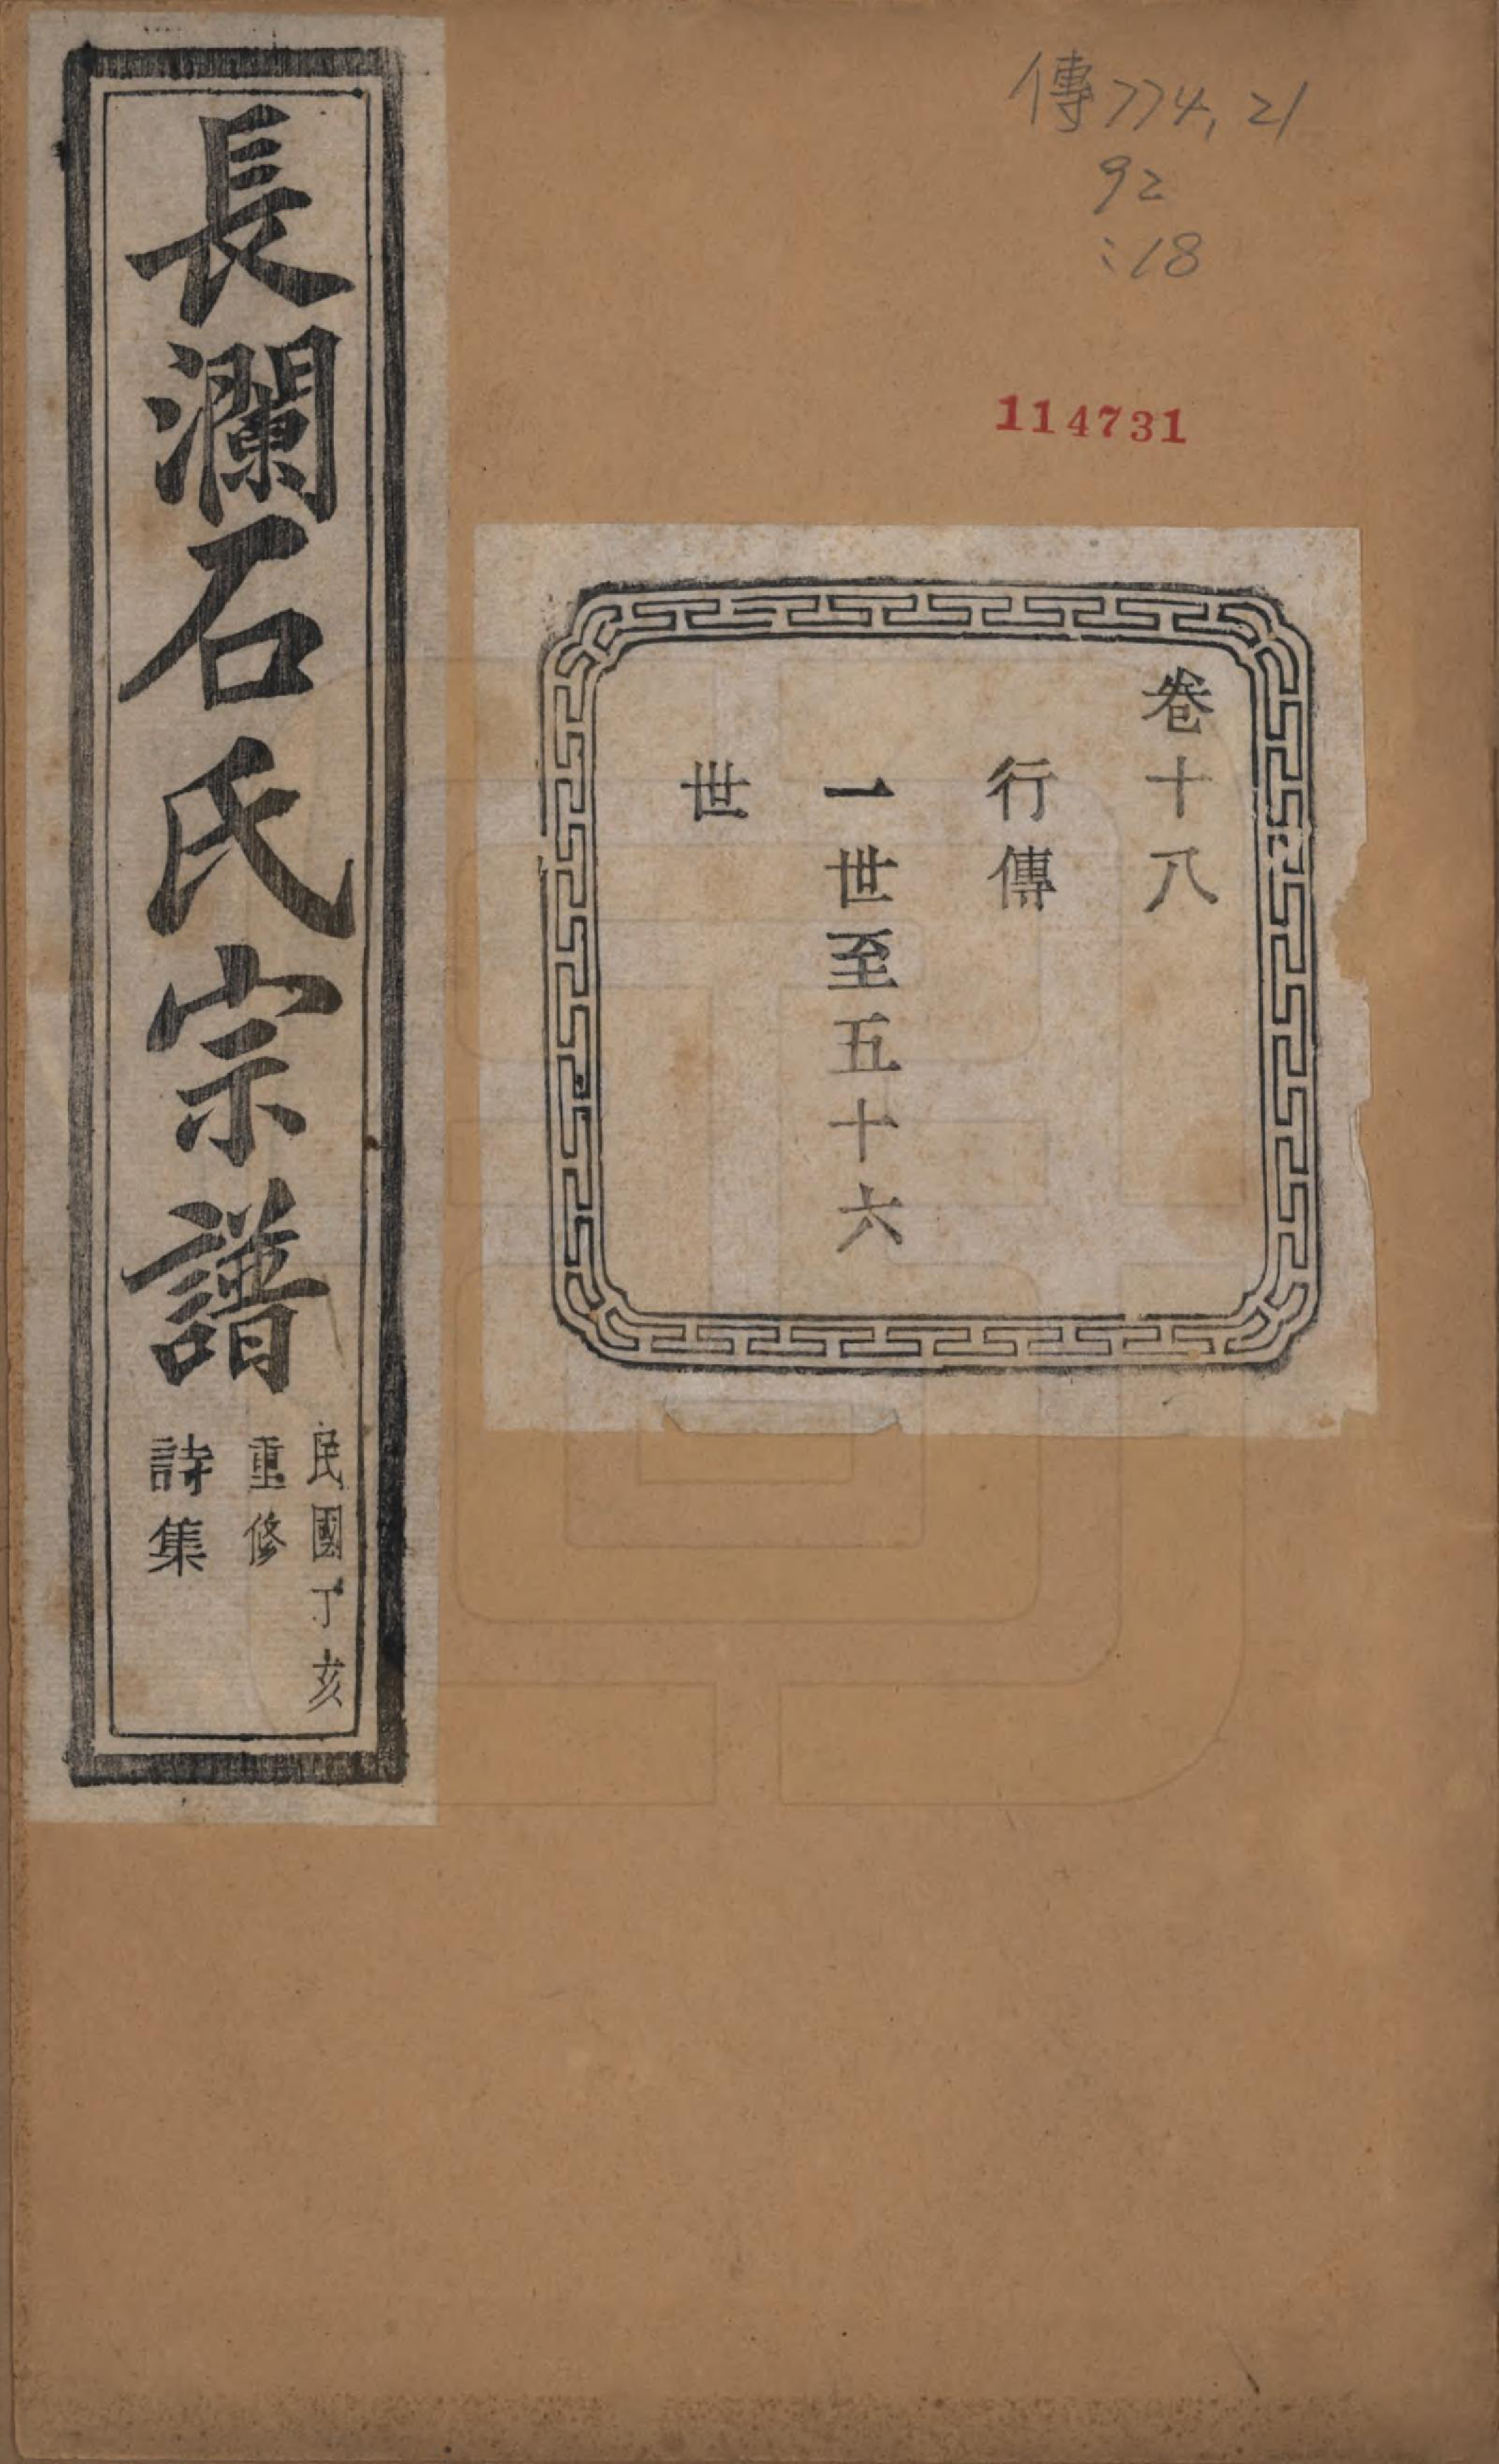 傳774.21
92
:18
114731
卷十八
行傳
一世至五十六
世
長瀾石氏宗譜
民國丁亥
重修
詩集